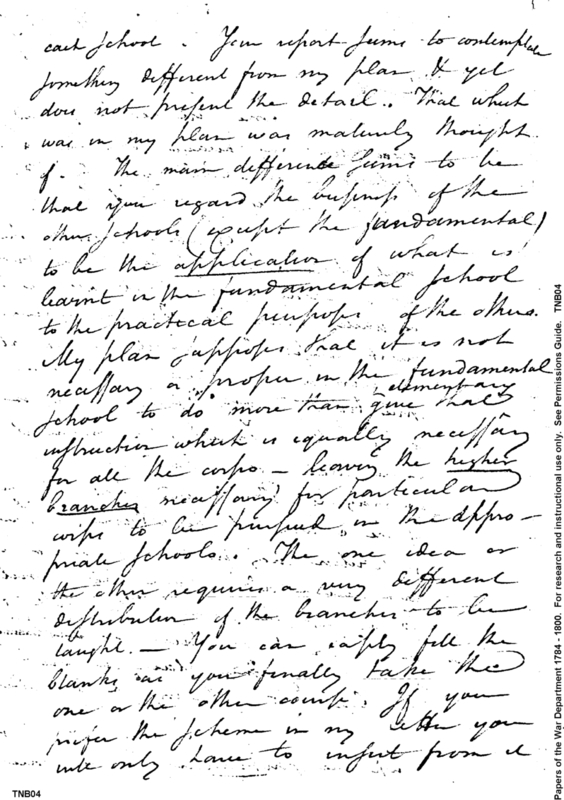 each school. Your report seems to contemplate
something different from my plan & yet
does not present the detail. That which
was in my plan was maturely thought
of. The main difference seems to be
that you regard the business of the
other schools (except the fundamental)
to be the application of what is
learnt in the fundamental school
to the practical purposes of the others.
My plan supposes that it is not
necessary or proper in the fundamental
school to do more than give that elementary
instruction which is equally necessary
for all the corps — leaving the higher
branches necessary for particular
corps to be pursued in the appro-
priate schools. The one idea or
the other requires a very different
distribution of the branches to be
taught. — You can easily fill the
blanks as you finally take the
one or the other course. If you
prefer the scheme in my letter you
will only have to insert from it
TNB04
Papers of the War Department 1784 - 1800. For research and instructional use only. See Permissions Guide. TNB04